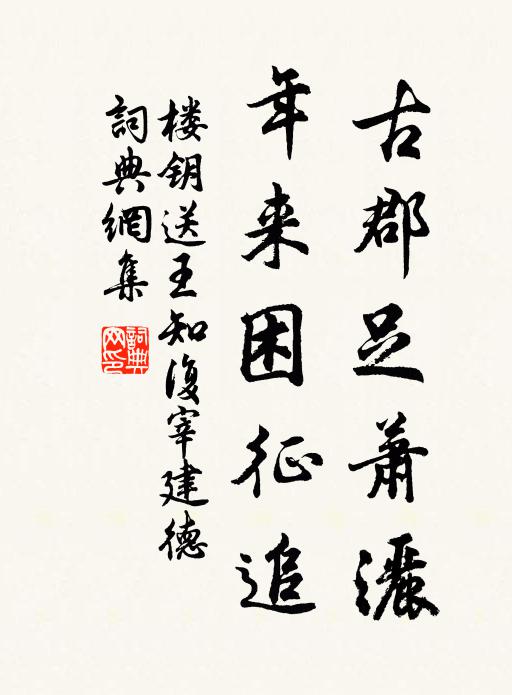 古郡足蕭灑
年来困征追
楼钥送王知復宰建德
詞典網集
詞典网印